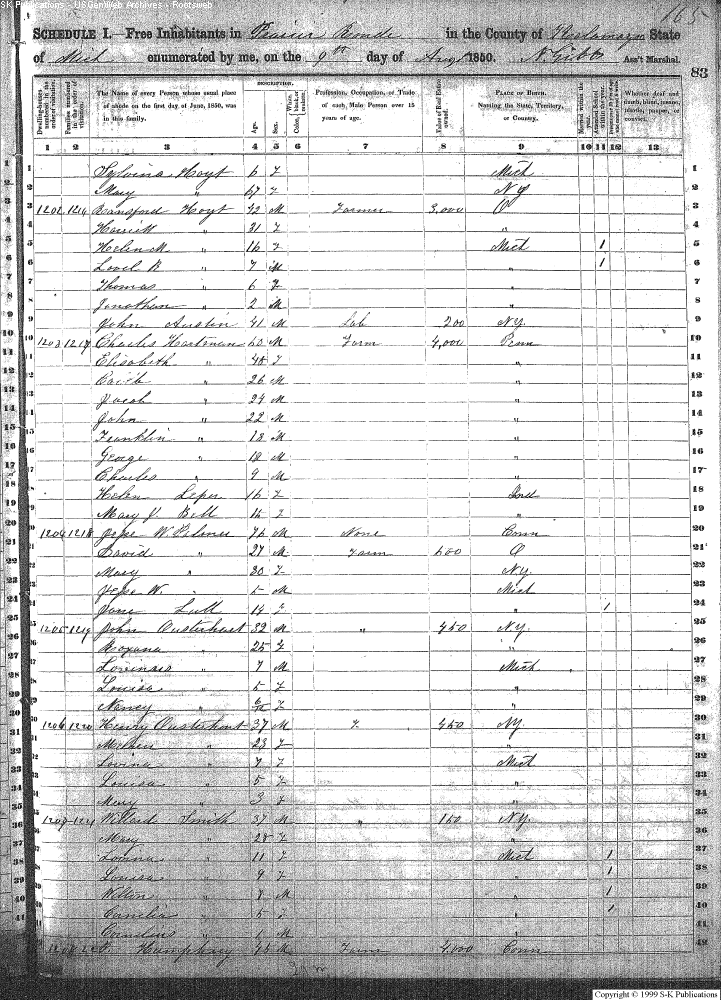 SK Publications - USGenWeb Archives - Rootsweb
165
SCHEDULE I.—Free Inhabitants in Prairie Ronde in the County of Kalamazoo State
of Mich enumerated by me, on the 9th day of Augt 1850. N. Gibbs Ass't Marshal.
83
Dwelling-houses numbered in the order of visitation.
Families numbered in the order of visitation.
The Name of every Person whose usual place of abode on the first day of June, 1850, was in this family.
DESCRIPTION.
Age.
Sex.
Color, White, black, or mulatto.
Profession, Occupation, or Trade of each Male Person over 15 years of age.
Value of Real Estate owned.
PLACE OF BIRTH. Naming the State, Territory, or Country.
Married within the year.
Attended School within the year.
Whether deaf and dumb, blind, insane, idiotic, pauper, or convict.
1 2 3 4 5 6 7 8 9 10 11 12 13
1 Sylvina Hoyt 6 F Mich 1
2 Mary " 67 F N Y 2
3 1202 1216 Ransford Hoyt 42 M Farmer 3,000 O 3
4 Harriett " 31 F " 4
5 Helen M " 16 F Mich 1 5
6 Lovel R " 7 M " 1 6
7 Thomas " 6 F " 7
8 Jonathan " 2 M " 8
9 John Austin 41 M Lab 200 N.Y. 9
10 1203 1217 Charles Hartman 50 M Farm 4,000 Penn 10
11 Elisabeth " 48 F " 11
12 " 26 M " 12
13 Jacob " 24 M " 13
14 John " 22 M " 14
15 Franklin " 18 M " 15
16 George " 18 M " 16
17 Charles " 9 M " 17
18 Helen Leper 16 F Ind 18
19 Mary J. Bell 15 F " 19
20 1204 1218 Jesse W. 76 M None Conn 20
21 David " 27 M Farm 600 O 21
22 Mary " 20 F N.Y. 22
23 Jesse W. " 5 M Mich 23
24 Jane Lull 14 F " 1 24
25 1205 1219 John Ousterhout 32 M " 450 N.Y. 25
26 Roxana " 25 F " 26
27 " 7 M Mich 27
28 Louisa " 5 F " 28
29 Nancy " 6/12 F " 29
30 1206 1220 Henry Ousterhout 37 M F 450 N.Y. 30
31 " 23 F " 31
32 Lovina " 7 F Mich 32
33 Louisa " 5 F " 33
34 Mary " 3 F " 34
35 1207 1221 Willard Smith 37 M " 150 N.Y. 35
36 Mary " 28 F " 36
37 " 11 F Mich 1 37
38 Louisa " 9 F " 1 38
39 " 7 M " 1 39
40 Cornelia " 5 F " 1 40
41 Cornelius " 1 M " 41
Humphrey 45 M Farm 4,000 Conn 42
Copyright © 1999 S-K Publications